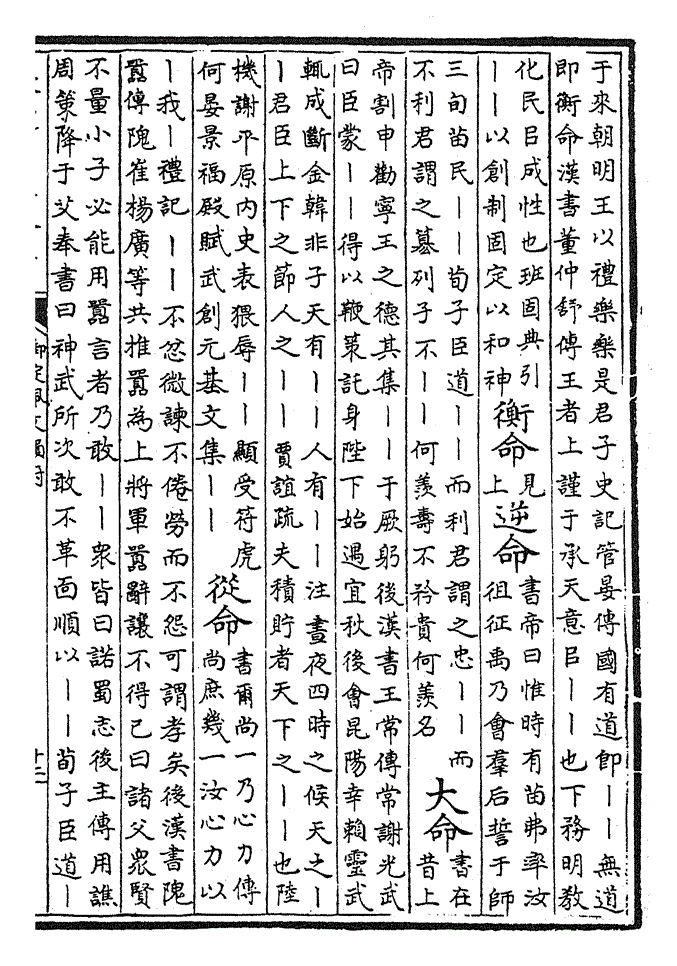 于來朝明王以禮樂樂是君子史記管晏傳國有道卽――無道
即衡命漢書董仲舒傳王者上謹于承天意㠯――也下務明教
化民㠯成性也班固典引
――以創制固定以和神
衡命
見
上
逆命
書帝曰惟時有苗弗率汝
徂征禹乃會羣后誓于師
三旬苗民――荀子臣道――而利君謂之忠――而
不利君謂之墓列子不――何羨壽不矜貴何羨名
大命
書在
昔上
帝割申勸寧王之德其集――于厥躬後漢書王常傳常謝光武
曰臣蒙――得以鞭策託身陛下始遇宜秋後會昆陽幸賴靈武
輒成斷金韓非子天有――人有――注晝夜四時之候天之―
―君臣上下之節人之――賈誼疏夫積貯者天下之――也陸
機謝平原内史表猥辱――顯受符虎
何晏景福殿賦武創元基文集――
從命
書爾尚一乃心力傳
尚庶幾一汝心力以
―我―禮記――不忿微諫不倦勞而不怨可謂孝矣後漢書隗
囂傳隗崔楊廣等共推囂為上將軍囂辭讓不得已曰諸父衆賢
不量小子必能用囂言者乃敢――衆皆曰諾蜀志後主傳用譙
周策降于艾奉書曰神武所次敢不革面順以――荀子臣道―